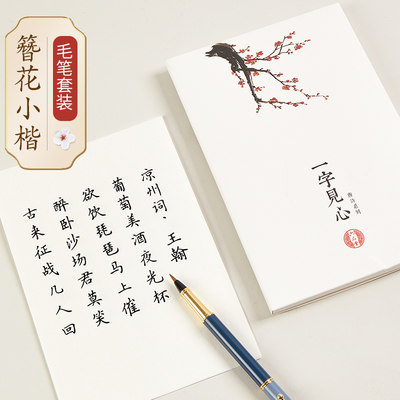 簪花小楷
毛笔套装
凉州词·王翰
葡萄美酒夜光杯
欲饮琵琶马上催
醉卧沙场君莫笑
古来征战几人回
一字見心